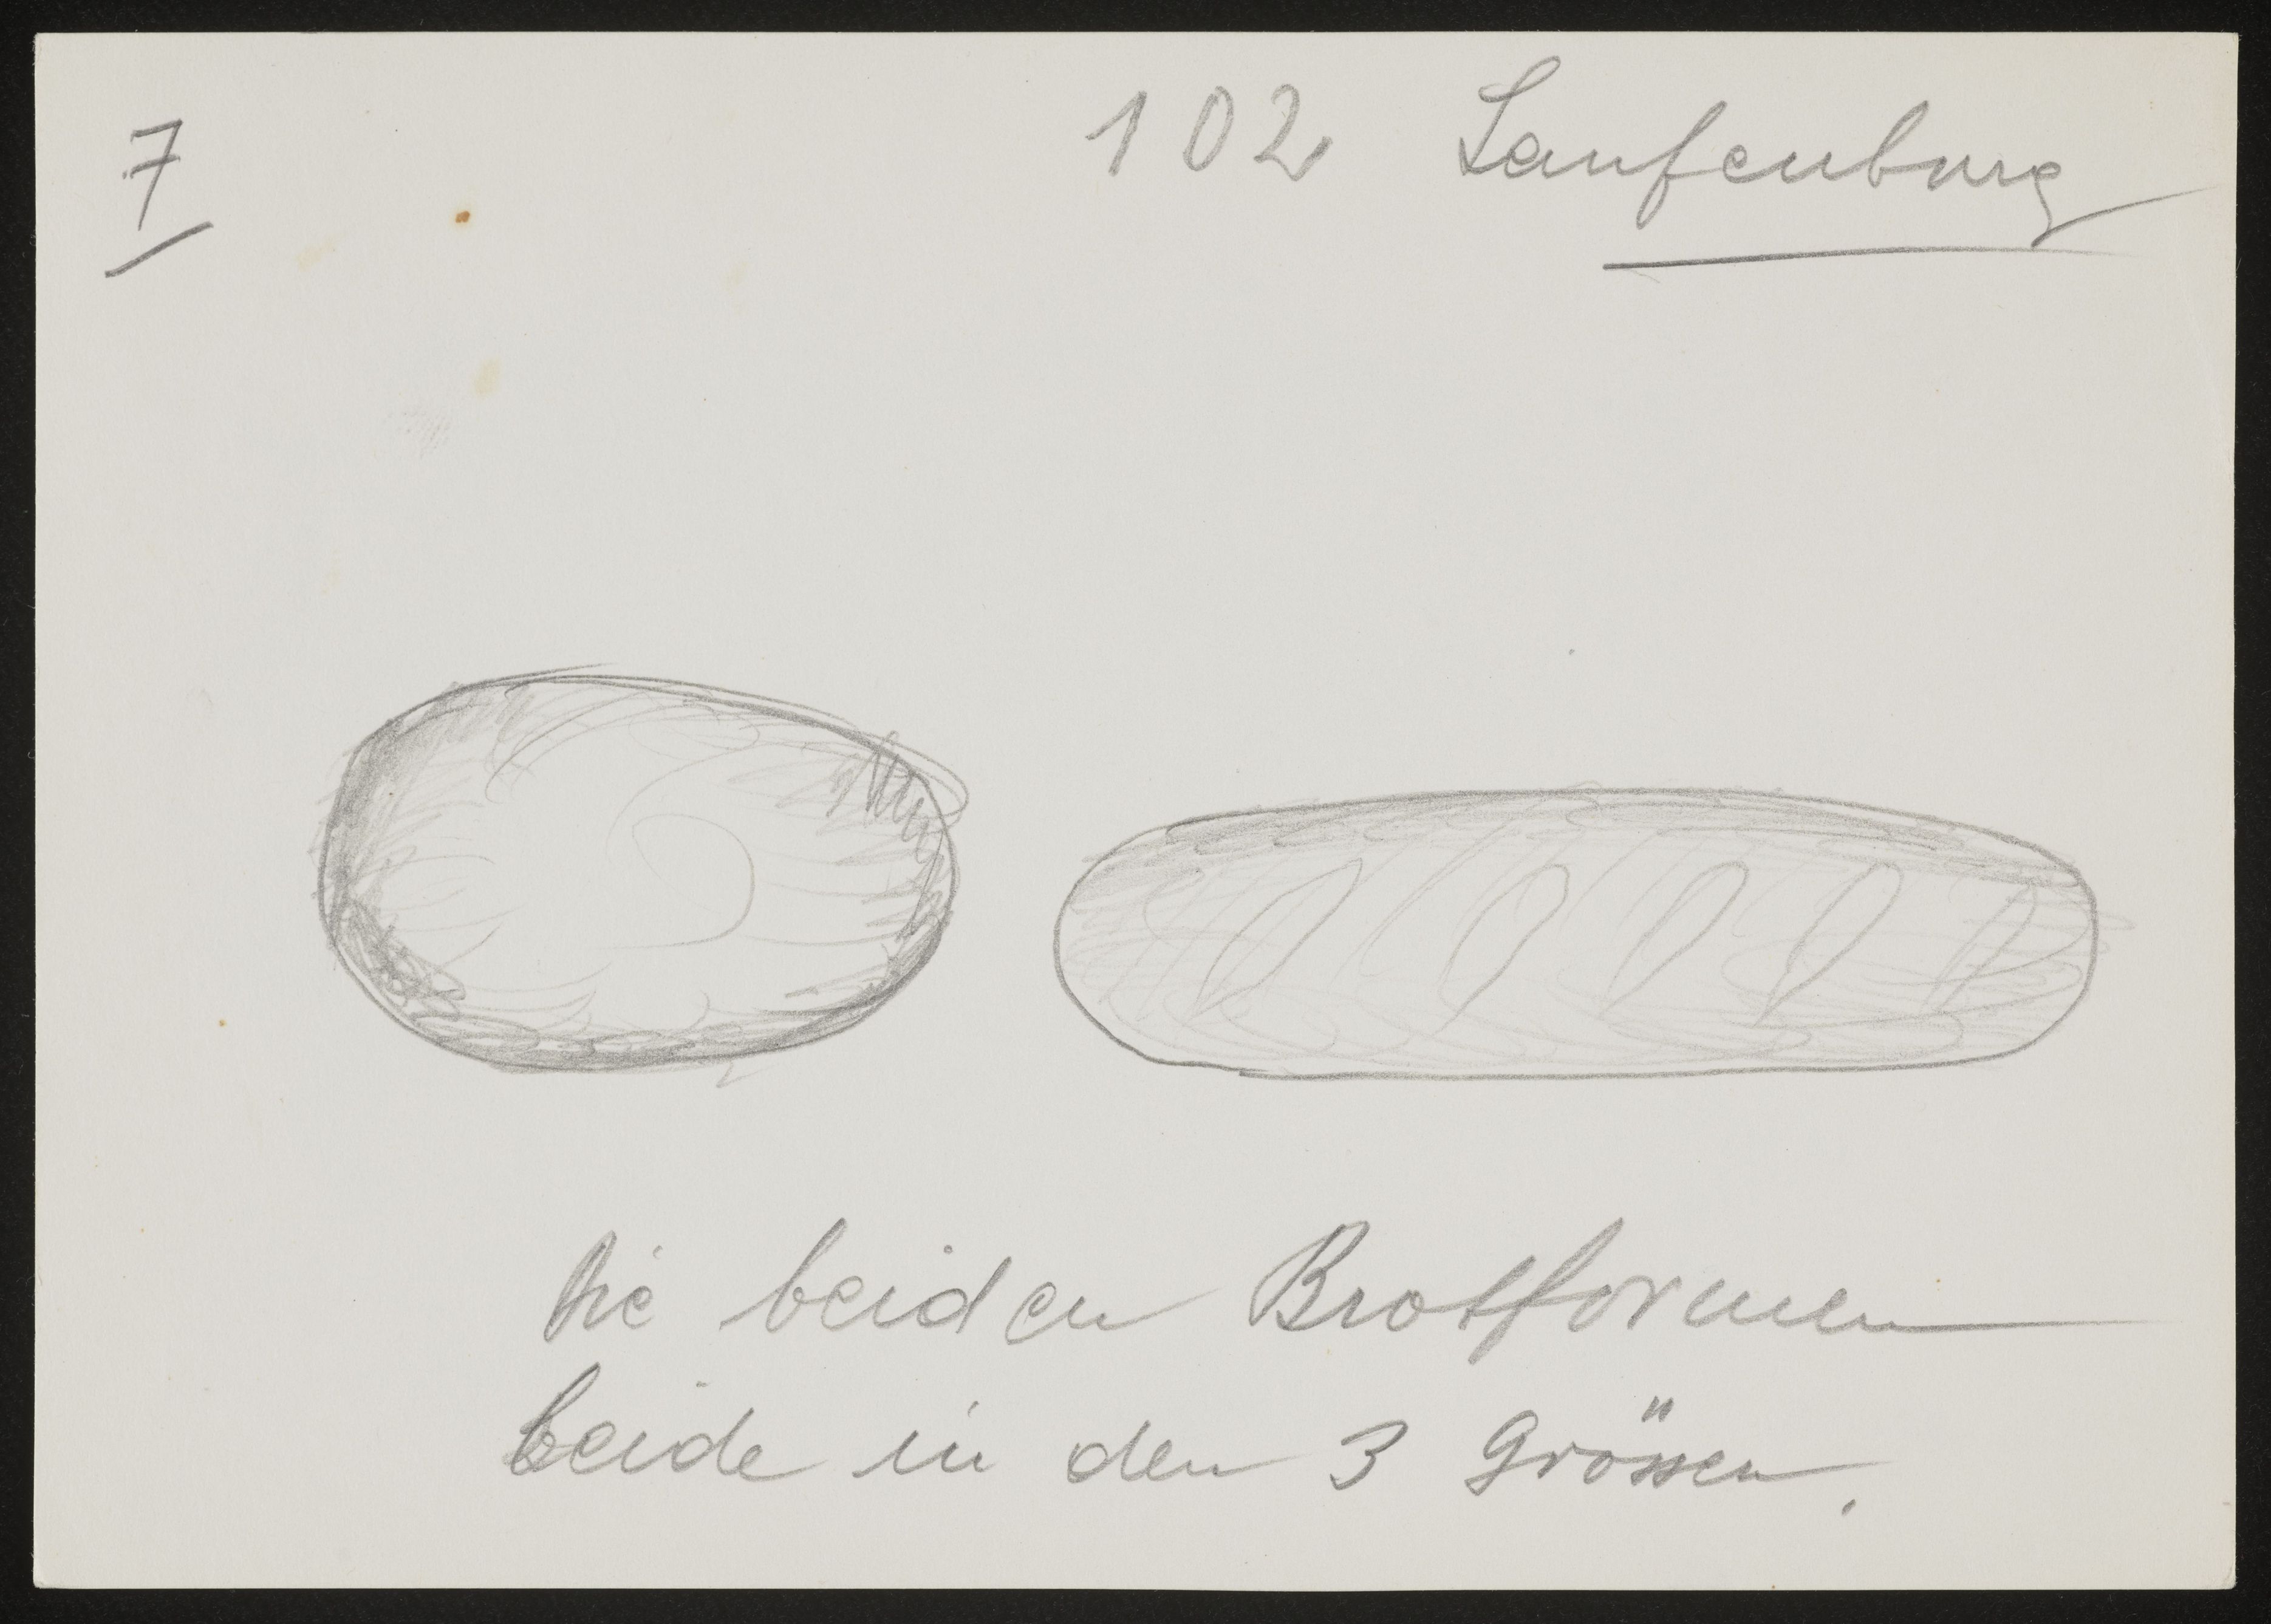 7
102 Laufenburg
Die beiden Brotformen
beide in den 3 Grössen.